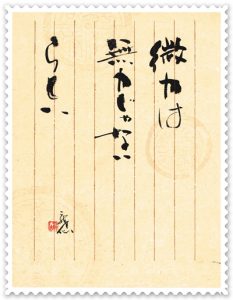 微力は
無力じゃない
らしい